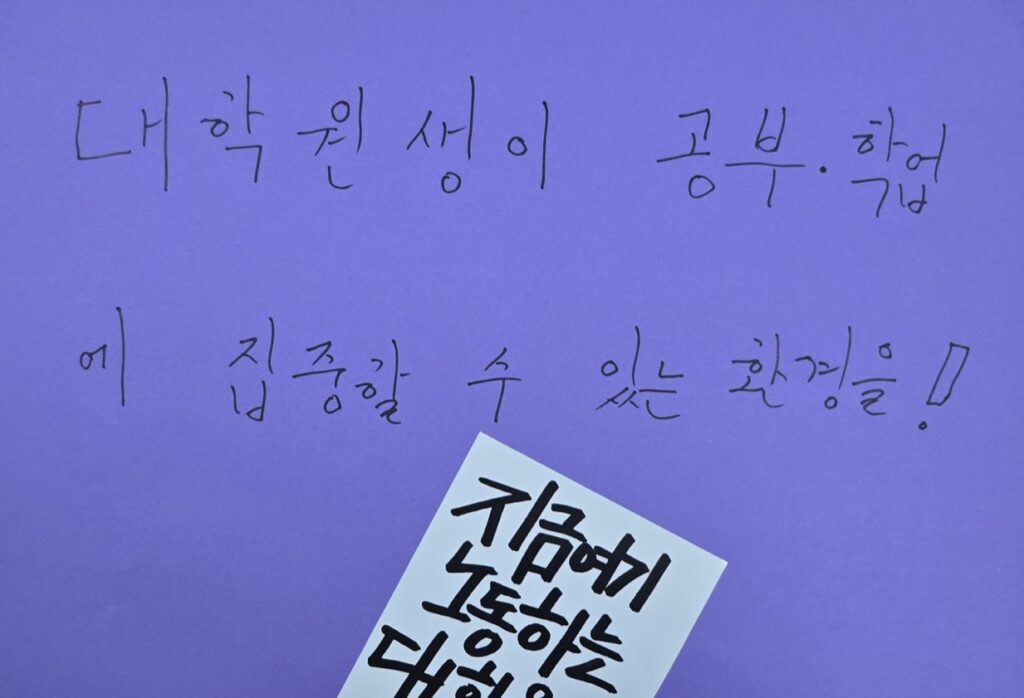 대학원생이 공부·학업
에 집중할 수 있는 환경을!
지금여기
노동하는
대학